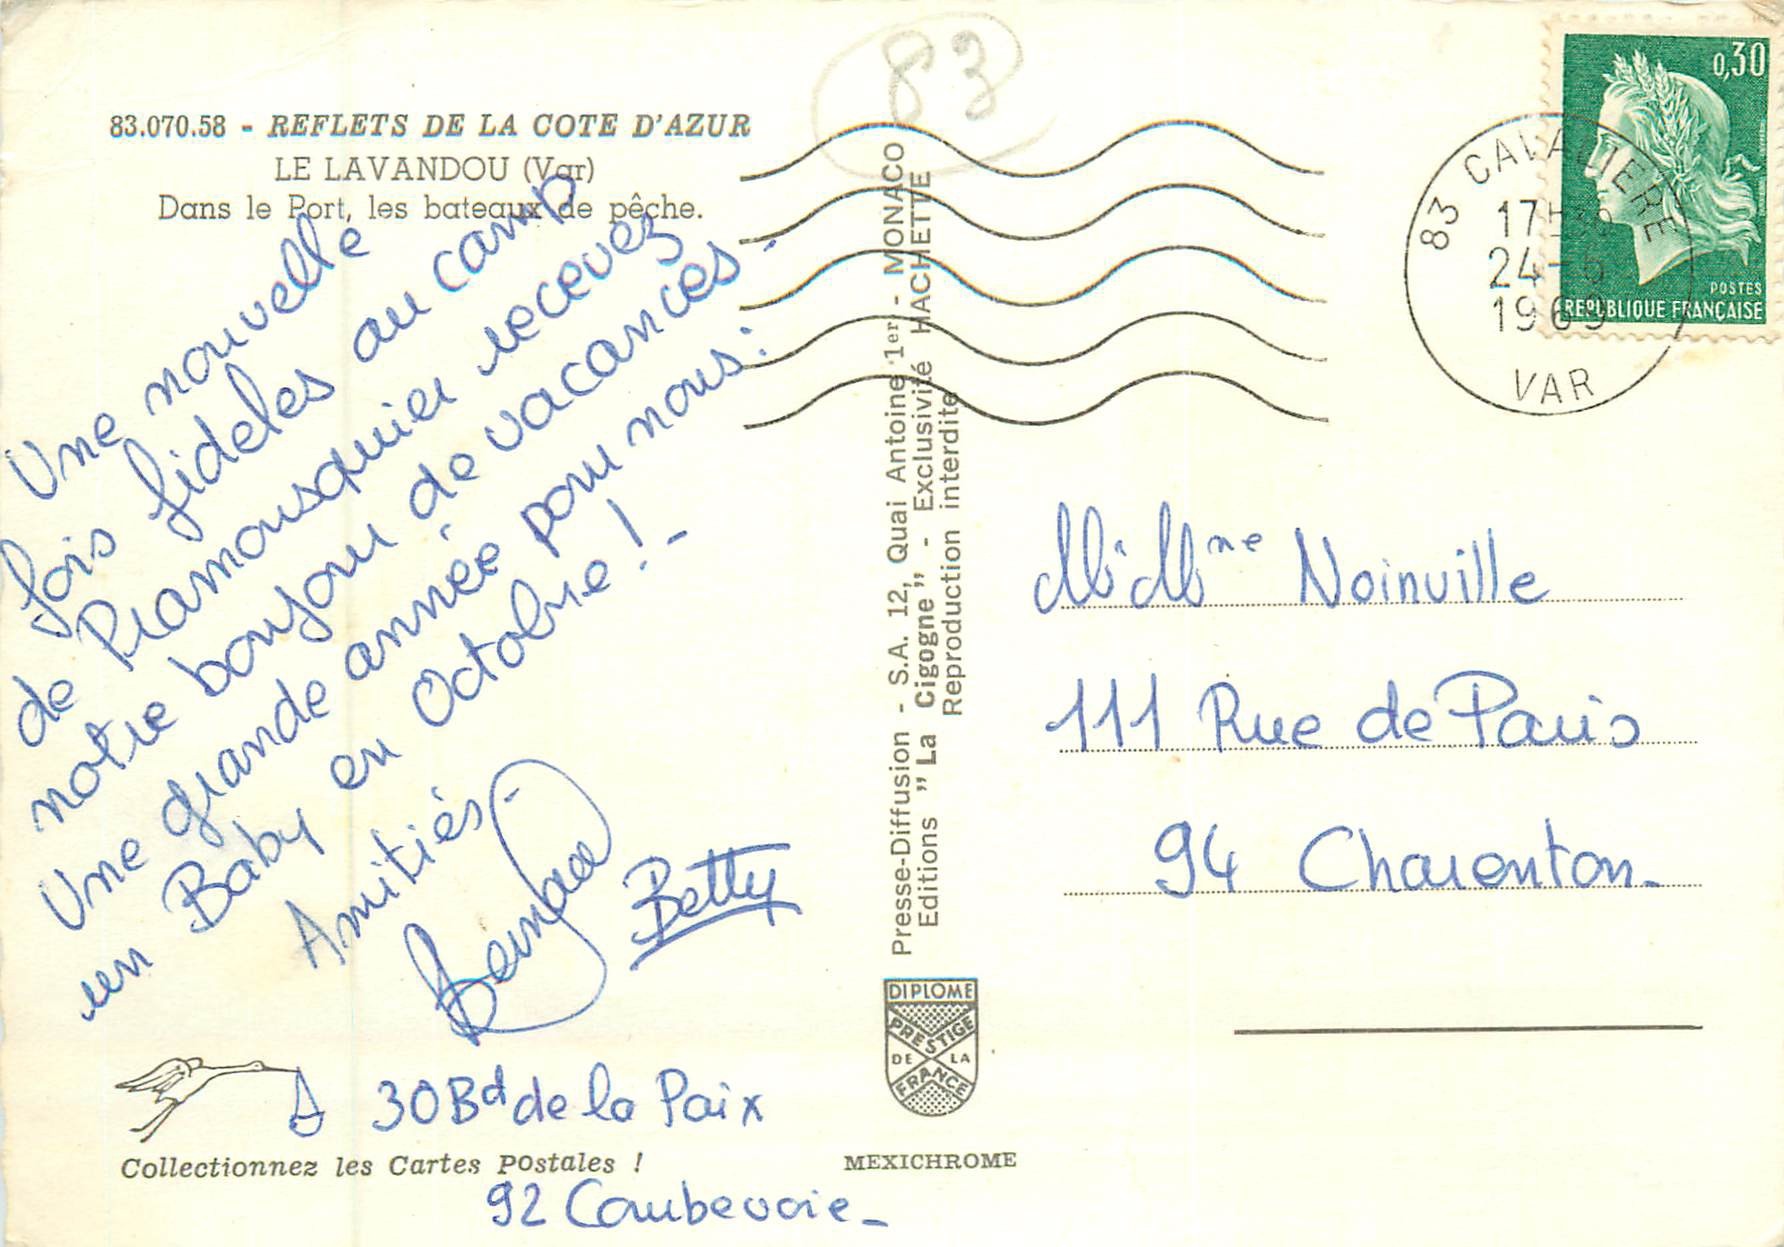 83
83.070.58 - REFLETS DE LA COTE D'AZUR
LE LAVANDOU (Var)
Dans le Port, les bateaux de pêche.
Une nouvelle
fois fideles au camp
de Pramousquier recevez
notre bonjour de vacances -
Une grande année pour nous :
un Baby en Octobre ! -
Amitiés -
Bernard
Betty
30 Bd de la Paix
92 Courbevoie -
Collectionnez les Cartes Postales !
MEXICHROME
Presse-Diffusion - S.A. 12, Quai Antoine 1er - MONACO
Editions " La Cigogne " - Exclusivité HACHETTE
Reproduction interdite
DIPLOME
PRESTIGE
DE LA
FRANCE
0,30
POSTES
REPUBLIQUE FRANÇAISE
83 CAVALIERE
17H
24-5
1969
VAR
Mr Mme Noinville
111 Rue de Paris
94 Charenton -